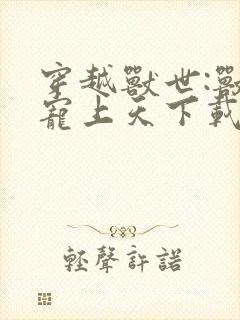 穿越獸世:獸
寵上天下載
輕聲許諾